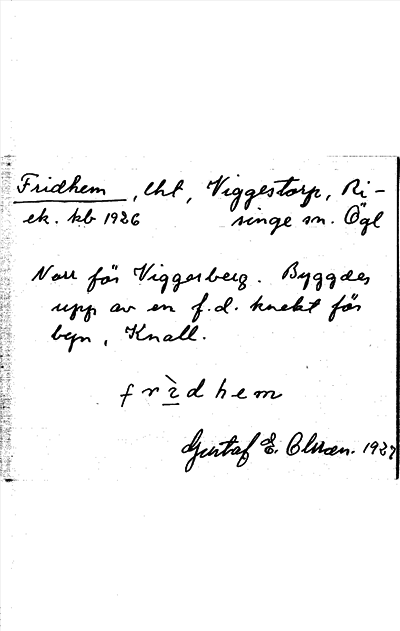 Fridhem, lht, Viggestorp, Ri-
ek. kb 1926 singe sn. Ögl
Norr för Viggesberg. Byggdes
upp av en f.d. knekt för
byn, Knall.
fr̀idhem
Gustaf E. Olsson. 1937